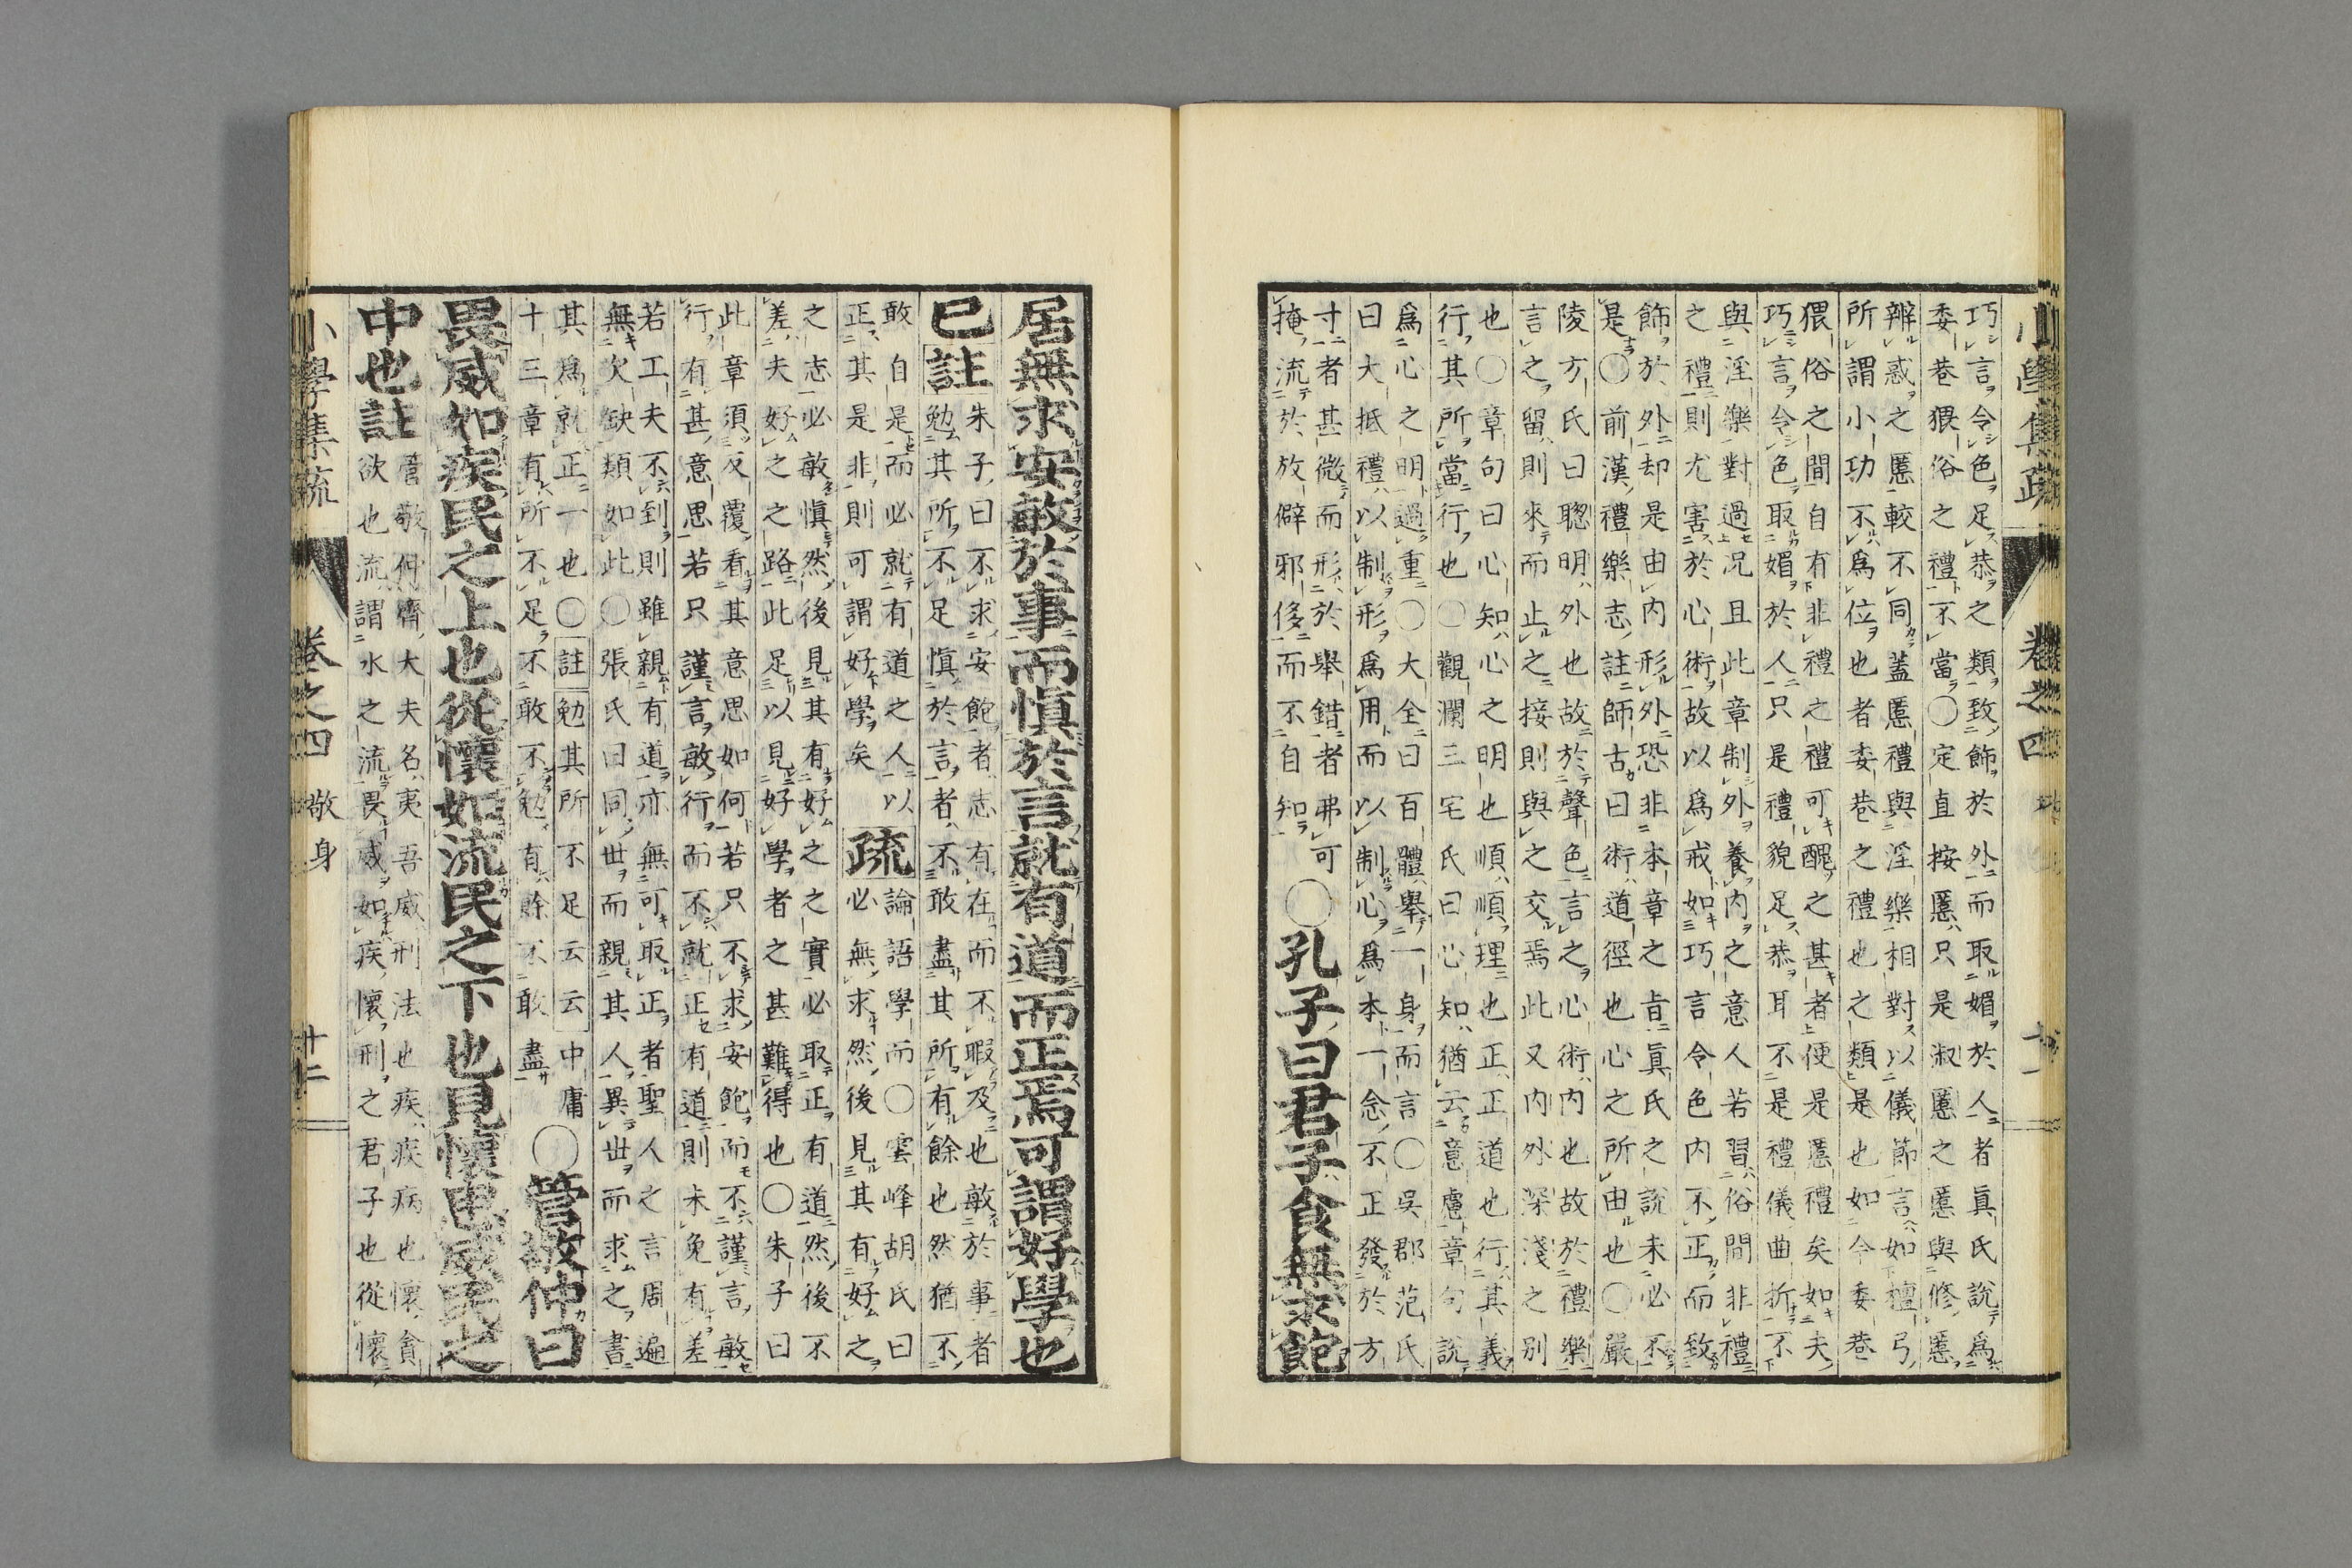 小學集疏 卷之四
巧言令色足恭之類致飾於外而取媚於人者眞氏說爲
委巷猥俗之禮不當○定直按慝只是淑慝之慝與修慝
辨惑之慝較不同蓋慝禮與淫樂相對以儀節言如檀弓
所謂小功不爲位也者委巷之禮也之類是也如今委巷
猥俗之間自有非禮之禮可醜之甚者便是慝禮矣如夫
巧言令色取媚於人只是禮貌足恭耳不是禮儀曲折不
與淫樂對過況且此章制外養內之意人若習俗間非禮
之禮則尤害於心術故以爲戒如巧言令色內不正而致
飾於外却是由內形外恐非本章之旨眞氏之說未必不
是○前漢禮樂志註師古曰術道徑也心之所由也○嚴
陵方氏曰聰明外也故於聲色言之心術內也故於禮樂
言之留則來而止之接則與之交焉此又內外深淺之別
也○章句曰心知心之明也順順理也正正道也行其義
行其所當行也○觀瀾三宅氏曰心知猶云意慮章句說
爲心之明過重○大全曰百體舉一身而言○吳郡范氏
曰大抵禮以制形爲用而以制心爲本一念不正發於方
寸者甚微而形於舉錯者弗可
掩流於放僻邪侈而不自知○孔子曰君子食無求飽
居無求安敏於事而愼於言就有道而正焉可謂好學也
已註朱子曰不求安飽者志有在而不暇及也敏於事者
勉其所不足愼於言者不敢盡其所有餘也然猶不
敢自是而必就有道之人以
正其是非則可謂好學矣疏論語學而○雲峰胡氏曰
必無求然後見其有好之
之志必敏愼然後見其有好之之實必取正有道然後不
差夫好之之路此足以見好學者之甚難得也○朱子曰
此章須反覆看其意思如何若只不求安飽而不謹言敏
行有甚意思若只謹言敏行而不就正有道則未免有差
若工夫不到則雖親有道亦無可取正者聖人之言周遍
無欠缺類如此○張氏曰同世而親其人異世而求之書
其爲就正一也○註勉其所不足云云中庸
十三章有所不足不敢不勉有餘不敢盡○管敬仲曰
畏威如疾民之上也從懷如流民之下也見懷思威民之
中也註管敬仲齊大夫名夷吾威刑法也疾疾病也懷貪
欲也流謂水之流畏威如疾懷刑之君子也從懷
小學集疏 卷之四 敬身 十二